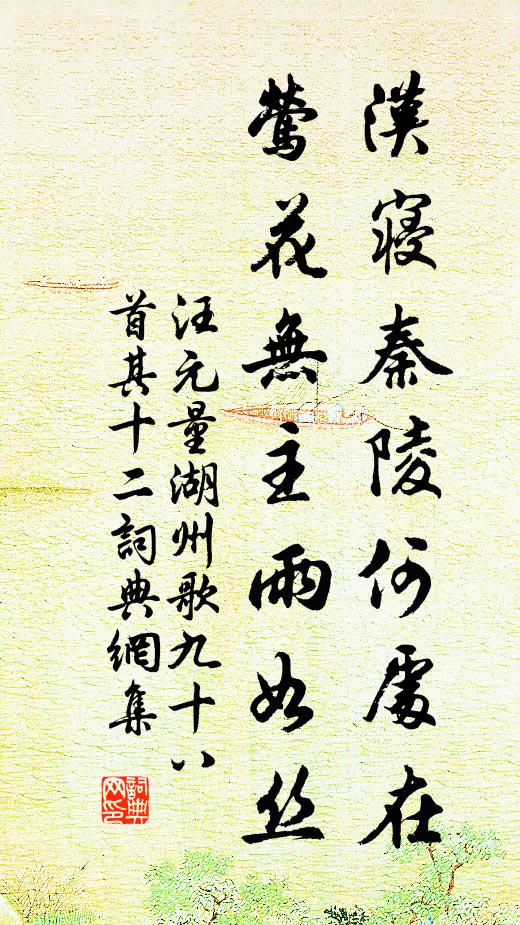 漢寢秦陵何處在
鶯花無主雨如絲
汪元量湖州歌九十八
首其十二詞典網集
詞典
网印